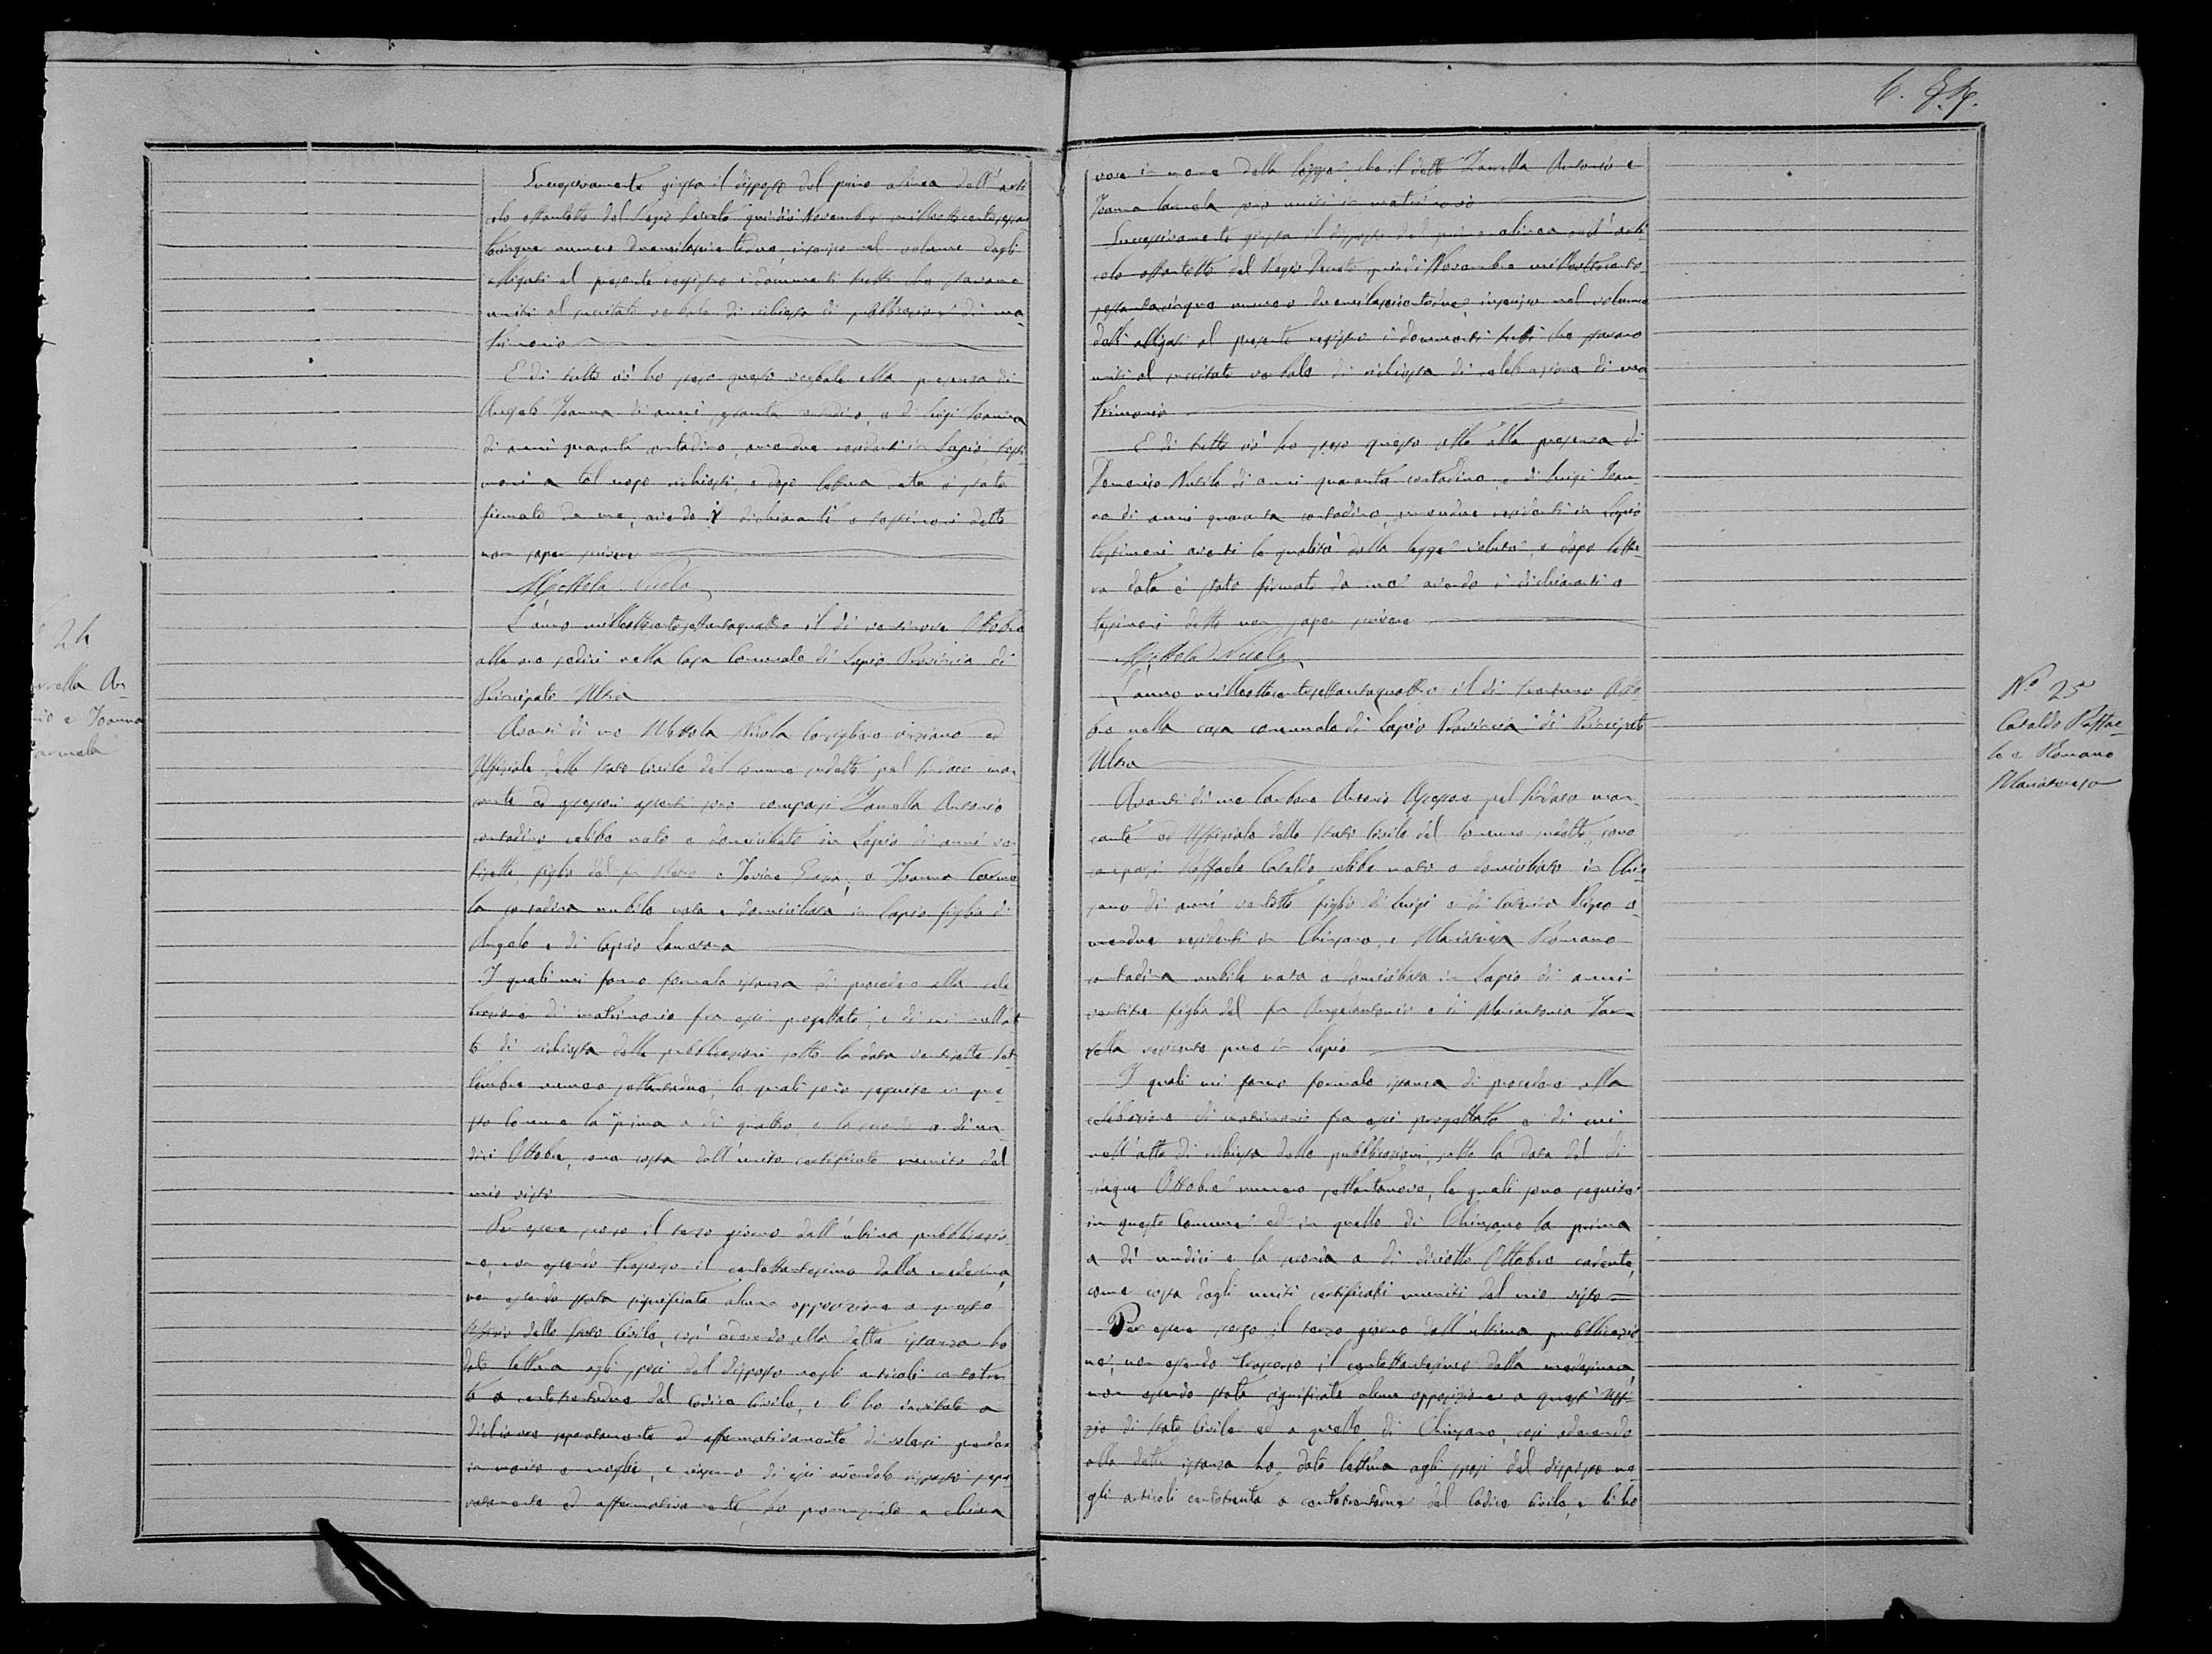 Successivamente giusta il disposto del primo alinea dell'arti
colo ottantotto del Regio Decreto quindici Novembre milleottocentosessan
tacinque numero duemilaseicentodue, inserisco nel volume degli
allegati al presente registro i documenti tutti che stavano
uniti al succitato verbale di richiesta di pubblicazioni di ma
trimonio
E di tutto ciò ho steso questo verbale alla presenza di
Angelo Joanna di anni contadino, e di Luigi Joanna
di anni quaranta contadino, amendue residenti in Lapio, testi
moni a tal uopo richiesti, e dopo lettura data è stato
firmato da me, avendo i dichiaranti e testimoni detto
non saper scrivere
Mottola Nicola
L'anno milleottocentosettantaquattro il dì ventinove Ottobre
alle ore sedici nella Casa Comunale di Lapio Provincia di
Principato Ultra
Avanti di me Mottola Nicola Consigliere anziano ed
Uffiziale dello stato Civile del comune sudetto pel Sindaco man
cante ed assessori assenti sono comparsi Zarrella Antonio
contadino celibe nato e domiciliato in Lapio di anni ven
tisette, figlio del fu e e Joanna Carme
la contadina nubile nata e domiciliata in Lapio figlia di
Angelo e di
I quali mi fanno formale istanza di procedere alla cele
brazione di matrimonio fra essi progettato, e di cui nell'at
to di richiesta delle pubblicazioni sotto la data ventisette Set
tembre numero settantadue, le quali sono seguite in que
sto Comune la prima a dì quattro, e la seconda a dì un
dici Ottobre, come costa dall'unito certificato munito del
mio visto
Per essere scorso il terzo giorno dall'ultima pubblicazio
ne, non essendo trascorso il centottantesimo dalla medesima,
non essendo stata significata alcuna opposizione a questo
Uffizio dello stato Civile, così aderendo alla detta istanza ho
dato lettura agli sposi del disposto negli articoli centotren
ta a centotrentadue del Codice Civile, e li ho invitato a
dichiarare separatamente ed affermativamente di volersi prendere
in marito e moglie, e ciascuno di essi avendolo risposto sepa
ratamente ed affermativamente, ho pronunziato a chiara
24
rella An
nio e Joanna
armela
6.
voce in nome della legge che il detti Zarrella Antonio e
Joanna Carmela sono uniti in matrimonio
Successivamente giusta il disposto del primo alinea dell'arti
colo ottantotto del Regio Decreto quindici Novembre milleottocento
sessantacinque numero duemilaseicentodue, inserisco nel volume
degli allegati al presente registro i documenti tutti che stavano
uniti al succitato verbale di richiesta di celebrazione di ma
trimonio
E di tutto ciò ho steso questo atto alla presenza di
Domenico di anni quaranta contadino e di Luigi Joan
na di anni quaranta contadino, amendue residenti in Lapio
testimoni aventi le qualità dalla legge volute, e dopo lettu
ra data è stato firmato da me avendo i dichiaranti e
testimoni detto non saper scrivere
Mottola Nicola
L'anno milleottocentosettantaquattro il dì trentuno Otto
bre nella casa comunale di Lapio Provincia di Principato
Ultra
Avanti di me Carbone Antonio Assessore pel Sindaco man
cante ed Uffiziale dello stato Civile del Comune sudetto, sono
comparsi Raffaele Cataldo celibe nato e domiciliato in Chiu
sano di anni ventotto figlio di Luigi e di a
mendue residenti in Chiusano, e Mariateresa Romano
contadina nubile nata e domiciliata in Lapio di anni
ventitre figlia del fu Angelantonio e di Mariantonia Zar
rella residente pure in Lapio
I quali mi fanno formale istanza di procedere alla
celebrazione di matrimonio fra essi progettato e di cui
nell'atto di richiesta delle pubblicazioni, sotto la data del dì
cinque Ottobre numero settantanove, le quali sono seguite
in questo Comune ed in quello di Chiusano la prima
a dì undici e la seconda a dì diciotto Ottobre cadente,
come costa dagli uniti certificati muniti del mio visto
Per essere scorso il terzo giorno dall'ultima pubblicazio
ne, non essendo trascorso il centottantesimo dalla medesima,
non essendo stata significata alcuna opposizione a quest'Uffi
zio di stato Civile ed a quello di Chiusano, così aderendo
alla detta istanza ho dato lettura agli sposi del disposto ne
gli articoli centotrenta a centotrentadue del Codice Civile, e li ho
N.º 25
Cataldo Raffae
le e Romano
Mariateresa